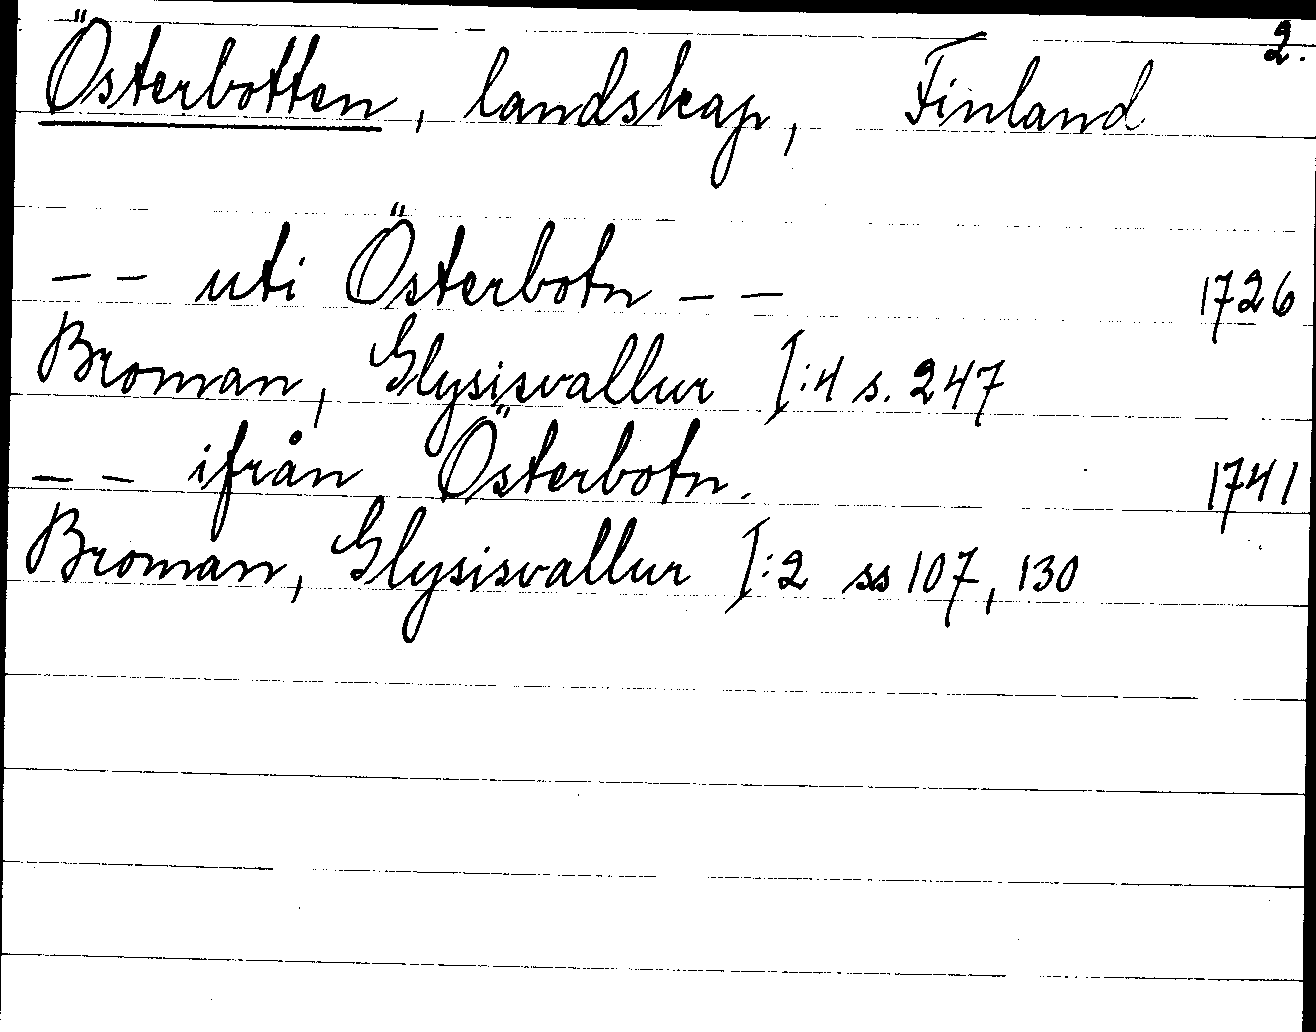 2.
Österbotten, landskap, Finland
– – uti Österbotn – – 1726
Broman, Glysisvallur I:4 s. 247
– – ifrån Österbotn. 1741
Broman, Glysisvallur I:2 ss 107, 130